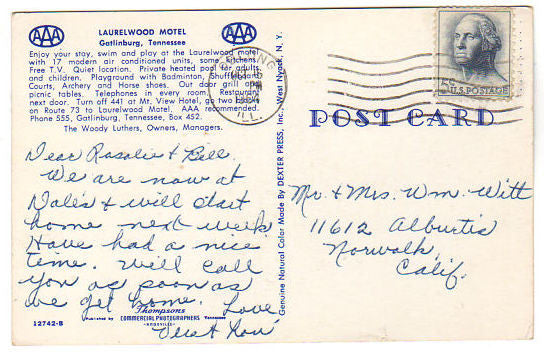 AAA
LAURELWOOD MOTEL
Gatlinburg, Tennessee
AAA
Enjoy your stay, swim and play at the Laurelwood motel
with 17 modern air conditioned units, some kitchens.
Free T.V. Quiet location. Private heated pool for adults
and children. Playground with Badminton, Shuffleboard
Courts, Archery and Horse shoes. Out door grill and
picnic tables. Telephones in every room. Restaurant
next door. Turn off 441 at Mt. View Hotel, go two blocks
on Route 73 to Laurelwood Motel. AAA recommended.
Phone 555, Gatlinburg, Tennessee, Box 452.
The Woody Luthers, Owners, Managers.
Dear Rosalie & Bill.
We are now at
Dale's & will start
home next week
Have had a nice
time. Will call
you as soon as
we get home.
Love,
Thompsons
Published by COMMERCIAL PHOTOGRAPHERS Tennessee
KNOXVILLE
12742-B
Genuine Natural Color Made By DEXTER PRESS, Inc. West Nyack, N. Y.
ILL.
5c U.S. POSTAGE
POST CARD
Mr. & Mrs. Wm. Witt
11612 Alburtis
Norwalk,
Calif.